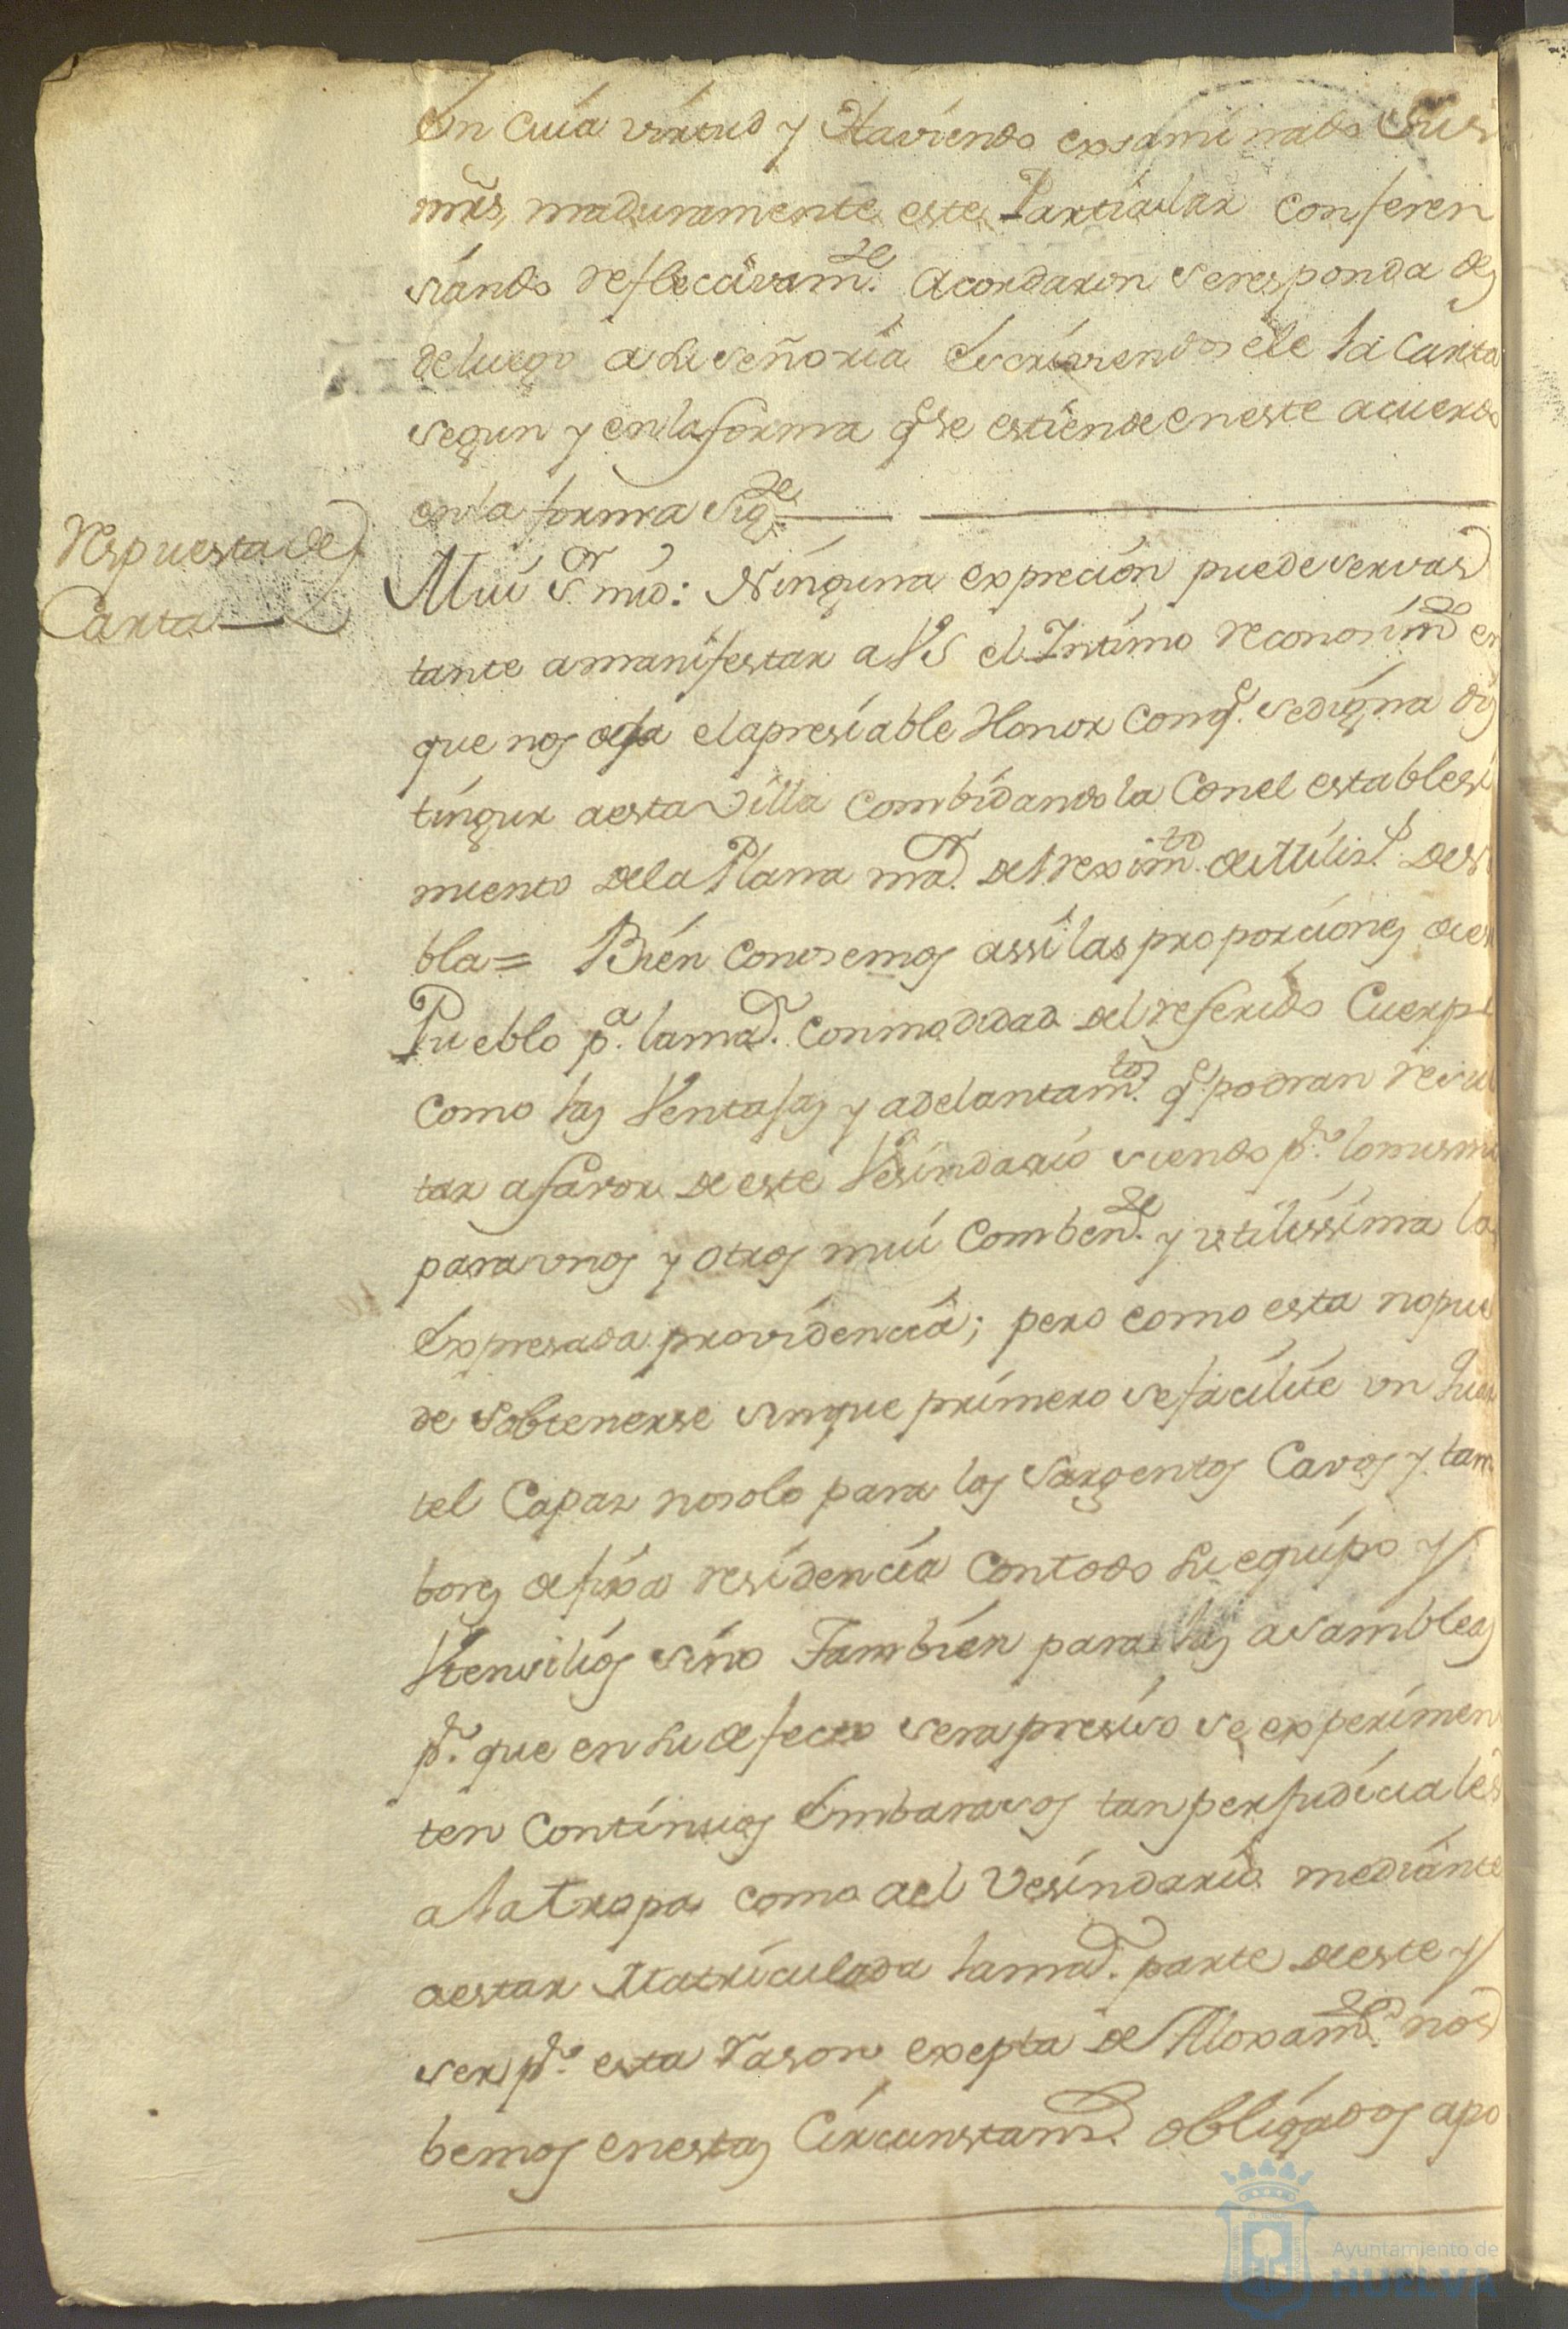 En cuia virtud y Haviendo exsaminado Sus
mrs, maduramente este Particular conferen
siando reflecsivam.te Acordaron se responda des
de luego a su señoria Escriviendosele la Carta
segun y en la forma q.e se estiende en este acuerdo
en la forma sig.te
Respuesta de
Carta
Mui S.r mio: Ninguna expreción puede ser vas
tante a manifestar a VS el Intimo reconosim.to en
que nos deja el apresiable Honor con q.e se digna dis
tinguir a esta Villa combidandola con el establesi
miento de la Plana ma.r del reximi.to de Milis.s de Se
bla= Bien conosemos assi las proporciones de es
Pueblo p.a la ma.r conmodidad del referido Cuerp
como las Ventajas y adelantam.tos q.e podran resul
tar a favor de este Vesindario siendo p.r lo mismo
para unos y otros mui Comben.te y utilissima la
Expresada providencia; pero como esta no pue
de sobtenerse sin que primero se facilite un Quar
tel Capaz no solo para los Sargentos Cavos y tam
bores de fixa residencia con todo su equipo y
Vtensilios sino Tambien para las asambleas
p.r que en su defecto sera presiso se experimen
ten continuos Embarasos tan perjudiciales
a la tropa como a el Vesindario mediante
a estar Matriculada la ma.r parte de este y
ser p.r esta rason exepta de Aloxam.tos nos
bemos en estas Circunstan.s obligados a po
Ayuntamiento de
HUELVA